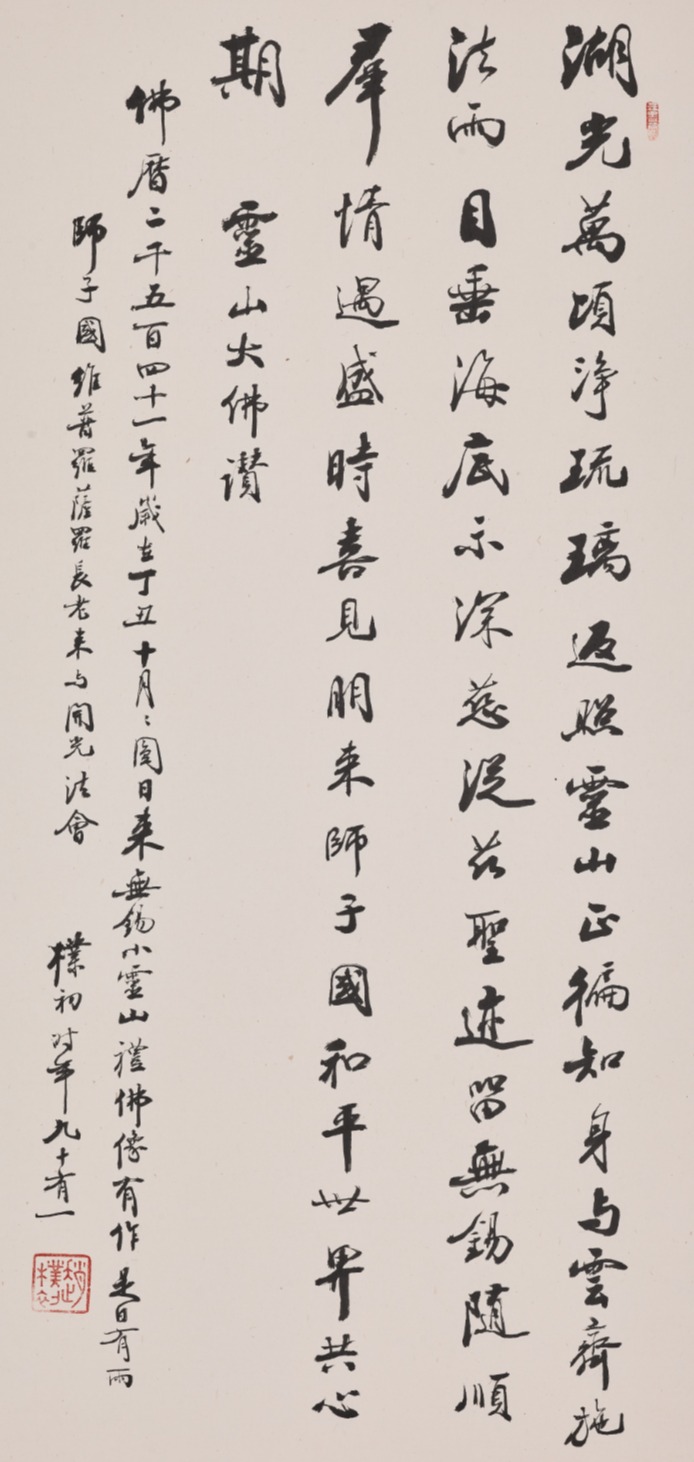 湖光萬頃淨琉璃返照靈山正徧知身与雲齊施
法雨目垂海底示深慈從茲聖迹留無錫隨順
羣情遇盛時喜見朋來師子國和平世界共心
期　靈山大佛讚
佛曆二千五百四十一年歲在丁丑十月〻圓日来無錫小靈山禮佛像有作是日有雨
師子國維普羅薩羅長老来与開光法會　樸初时年九十有一
趙樸初